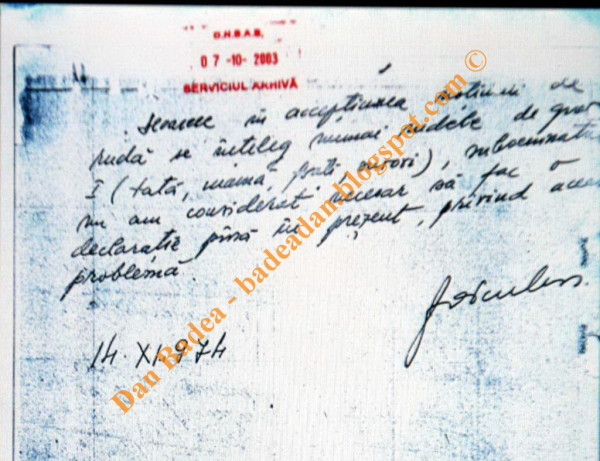 C.N.S.A.S.
07-10-2003
SERVICIUL ARHIVĂ
în accepțiunea noțiunii de
rudă se înțeleg numai rudele de grad
I (tată, mamă, frați, surori), subsemnatu
nu am considerat necesar să fac o
declarație pînă în prezent, privind aceas
problemă.
14.XI.974
Dan Badea - badeadan.blogspot.com ©